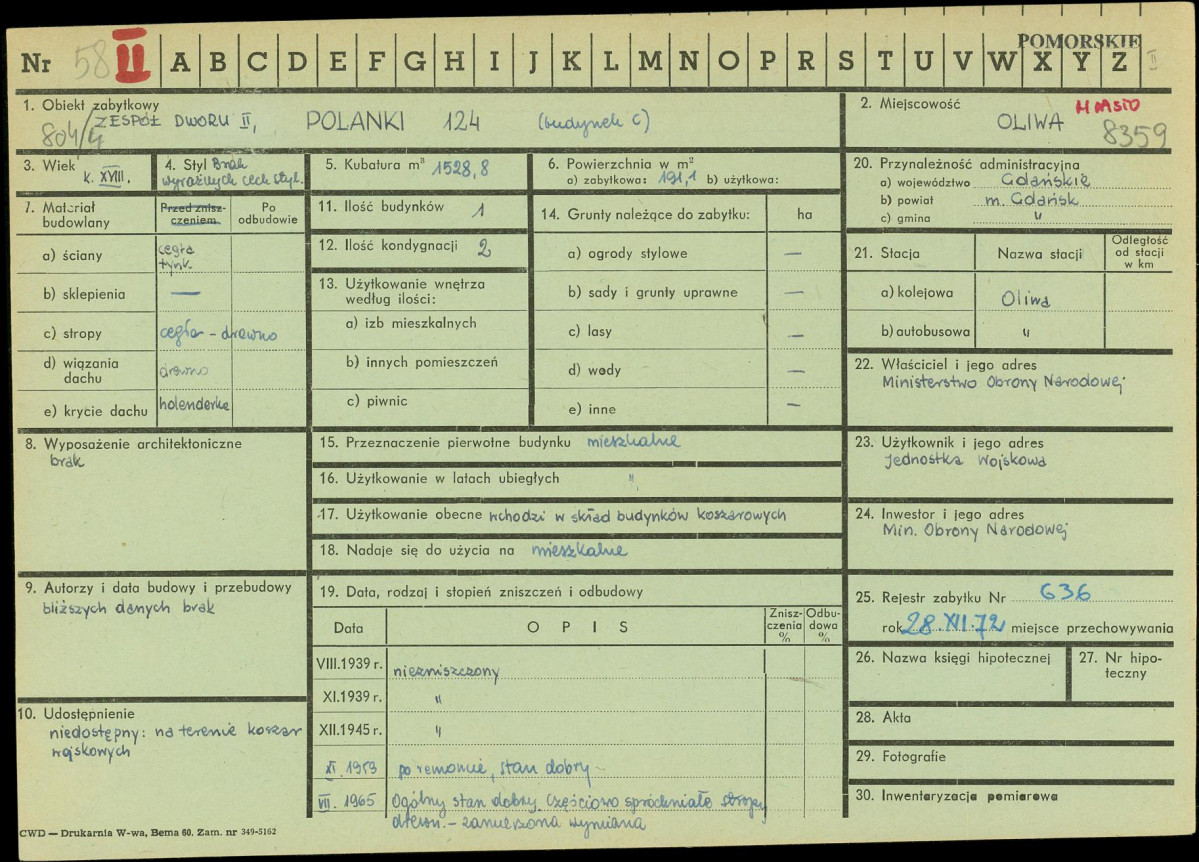 POMORSKIE
Nr 58 II A B C D E F G H I J K L M N O P R S T U V W X Y Z II
1. Obiekt zabytkowy
804/4 ZESPÓŁ DWORU II, POLANKI 124 (budynek C)
2. Miejscowość
MIASTO
OLIWA 8359
3. Wiek
k. XVIII.
4. Styl Brak
wyraźnych cech styl.
5. Kubatura m³ 1528,8
6. Powierzchnia w m²
a) zabytkowa: 191,1 b) użytkowa:
7. Materiał
budowlany
Przed znisz-
czeniem
Po
odbudowie
a) ściany cegła
tynk
b) sklepienia —
c) stropy cegła - drewno
d) wiązania
dachu drewno
e) krycie dachu holenderka
8. Wyposażenie architektoniczne
brak
9. Autorzy i data budowy i przebudowy
bliższych danych brak
10. Udostępnienie
niedostępny: na terenie koszar
wojskowych
11. Ilość budynków 1
12. Ilość kondygnacji 2
13. Użytkowanie wnętrza
według ilości:
a) izb mieszkalnych
b) innych pomieszczeń
c) piwnic
14. Grunty należące do zabytku: ha
a) ogrody stylowe —
b) sady i grunty uprawne —
c) lasy —
d) wody —
e) inne —
15. Przeznaczenie pierwotne budynku mieszkalne
16. Użytkowanie w latach ubiegłych "
17. Użytkowanie obecne wchodzi w skład budynków koszarowych
18. Nadaje się do użycia na mieszkalne
19. Data, rodzaj i stopień zniszczeń i odbudowy
Data OPIS
Znisz-
czenia
%
Odbu-
dowa
%
VIII.1939 r. niezniszczony
XI.1939 r. "
XII.1945 r. "
XI.1959 po remoncie, stan dobry -
VII. 1965 Ogólny stan dobry. Częściowo spróchniałe stropy
drewn. - zamierzona wymiana
20. Przynależność administracyjna
a) województwo Gdańskie
b) powiat m. Gdańsk
c) gmina "
21. Stacja Nazwa stacji
Odległość
od stacji
w km
a) kolejowa Oliwa
b) autobusowa "
22. Właściciel i jego adres
Ministerstwo Obrony Narodowej
23. Użytkownik i jego adres
Jednostka Wojskowa
24. Inwestor i jego adres
Min. Obrony Narodowej
25. Rejestr zabytku Nr 636
rok 28.XII.72 miejsce przechowywania
26. Nazwa księgi hipotecznej
27. Nr hipo-
teczny
28. Akta
29. Fotografie
30. Inwentaryzacja pomiarowa
CWD — Drukarnia W-wa, Bema 60. Zam. nr 349-5162